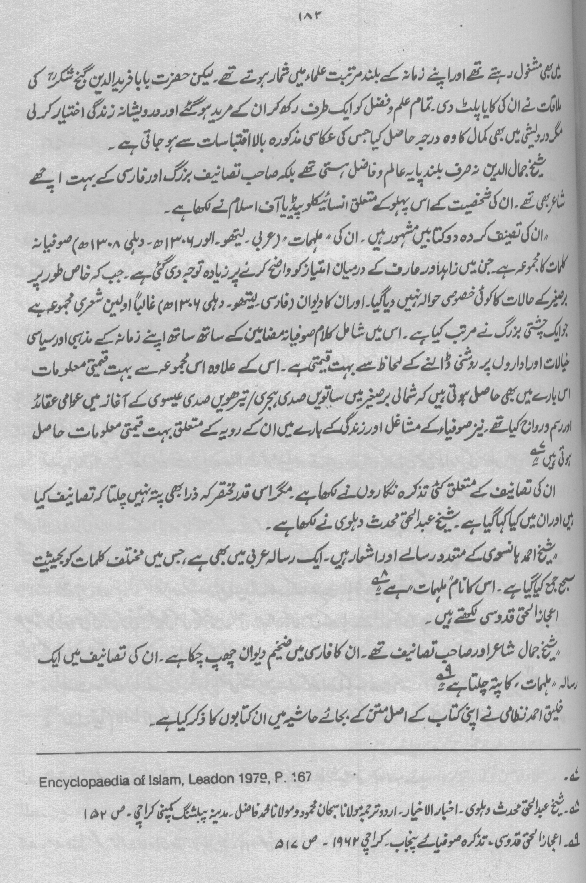 ۱۸۳
میں بھی مشغول رہتے تھے اور اپنے زمانہ کے بلند مرتبت علماء میں شمار ہوتے تھے۔ لیکن حضرت بابا فرید الدین گنج شکرؒ کی
ملاقات نے ان کی کایا پلٹ دی۔ تمام علم و فضل کو ایک طرف رکھ کر ان کے مرید ہو گئے اور درویشانہ زندگی اختیار کر لی
مگر درویشی میں بھی کمال کا وہ درجہ حاصل کیا جس کی عکاسی مذکورہ بالا اقتباسات سے ہو جاتی ہے۔
شیخ جمال الدین نہ صرف بلند پایہ عالم و فاضل ہستی تھے بلکہ صاحب تصانیف بزرگ اور فارسی کے بہت اچھے
شاعر بھی تھے۔ ان کی شخصیت کے اس پہلو کے متعلق انسائیکلوپیڈیا آف اسلام نے لکھا ہے۔
"ان کی تصنیف کردہ دو کتابیں مشہور ہیں۔ ان کی "ملہمات" (عربی۔ لیتھو۔ الور ۱۳۰۶ھ۔ دہلی ۱۳۰۸ھ) صوفیانہ
کلمات کا مجموعہ ہے۔ جن میں زاہد اور عارف کے درمیان امتیاز کو واضح کرنے پر زیادہ توجہ دی گئی ہے۔ جب کہ خاص طور پر
برصغیر کے حالات کا کوئی خصوصی حوالہ نہیں دیا گیا۔ اور ان کا دیوان (فارسی۔ لیتھو۔ دہلی ۱۳۰۶ھ) غالباً اولین شعری مجموعہ ہے
جو ایک چشتی بزرگ نے مرتب کیا ہے۔ اس میں شامل کلام صوفیانہ مضامین کے ساتھ ساتھ اپنے زمانہ کے مذہبی اور سیاسی
خیالات اور اداروں پر روشنی ڈالنے کے لحاظ سے بہت قیمتی ہے۔ اس کے علاوہ اس مجموعہ سے بہت قیمتی معلومات
اس بارے میں بھی حاصل ہوتی ہیں کہ شمالی برصغیر میں ساتویں صدی ہجری/تیرھویں صدی عیسوی کے آغاز میں عوامی عقائد
اور رسم و رواج کیا تھے۔ نیز صوفیاء کے مشاغل اور زندگی کے بارے میں ان کے رویہ کے متعلق بہت قیمتی معلومات حاصل
ہوتی ہیں ۷ے
ان کی تصانیف کے متعلق کئی تذکرہ نگاروں نے لکھا ہے مگر اسی قدر مختصر کہ ذرا بھی پتہ نہیں چلتا کہ تصانیف کیا
ہیں اور ان میں کیا کہا گیا ہے۔ شیخ عبدالحق محدث دہلوی نے لکھا ہے۔
"شیخ احمد ہانسوی کے متعدد رسالے اور اشعار ہیں۔ ایک رسالہ عربی میں بھی ہے، جس میں مختلف کلمات کو بحیثیت
سجع جمع کیا گیا ہے۔ اس کا نام ملہمات ہے ۸ے
اعجاز الحق قدوسی لکھتے ہیں۔
"شیخ جمال شاعر اور صاحب تصانیف تھے۔ ان کا فارسی میں ضخیم دیوان چھپ چکا ہے۔ ان کی تصانیف میں ایک
رسالہ "ملہمات" کا پتہ چلتا ہے ۹ے
خلیق احمد نظامی نے اپنی کتاب کے اصل متن کے بجائے حاشیہ میں ان کتابوں کا ذکر کیا ہے۔
۷ے۔ Encyclopaedia of Islam, Leadon 1979, P. 167
۸ے۔ شیخ عبدالحق محدث دہلوی۔ اخبار الاخیار۔ اردو ترجمہ مولانا سبحان محمود و مولانا محمد فاضل۔ مدینہ پبلشنگ کمپنی کراچی۔ ص ۱۵۲
۹ے۔ اعجاز الحق قدوسی۔ تذکرہ صوفیائے پنجاب۔ کراچی ۱۹۶۲۔ ص ۵۱۷